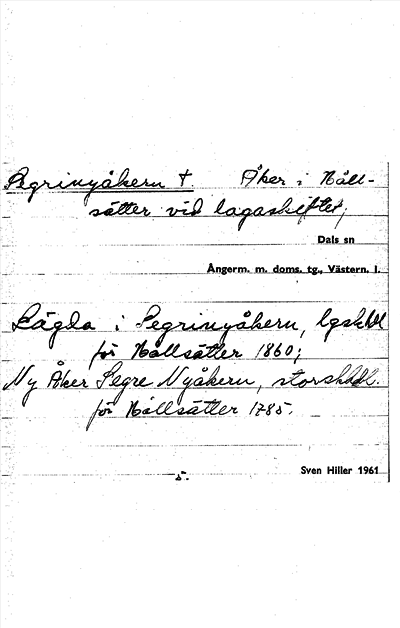 Segrinyåkern †. Åker i Håll-
sätter vid lagaskiftet;
Dals sn
Ångerm. m. doms. tg., Västern. l.
Lägda i Segrinyåkern, lgskhdl
för Hållsätter 1860;
Ny Åker Segre Nyåkern, storskhdl.
för Hållsätter 1785.
Sven Hiller 1961